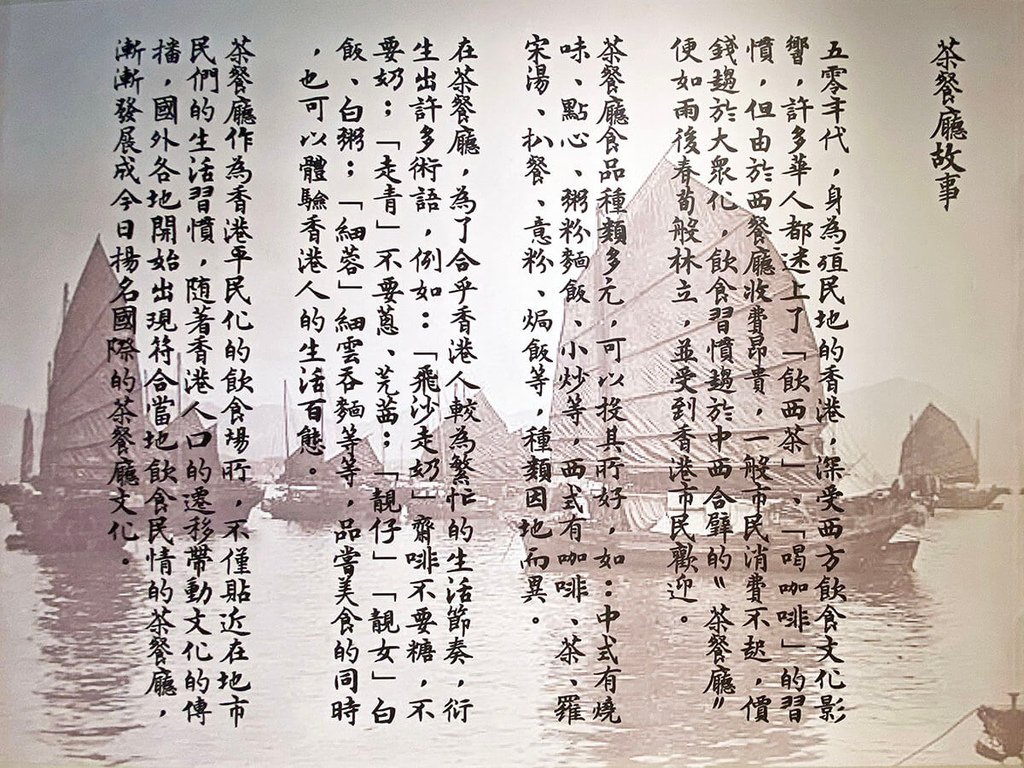 茶餐廳故事
五零年代，身為殖民地的香港，深受西方飲食文化影
響，許多華人都迷上了「飲西茶」、「喝咖啡」的習
慣，但由於西餐廳收費昂貴，一般市民消費不起，價
錢趨於大眾化，飲食習慣趨於中西合璧的〝茶餐廳〞
便如雨後春筍般林立，並受到香港市民歡迎。
茶餐廳食品種類多元，可以投其所好，如：中式有燒
味、點心、粥粉麵飯、小炒等，西式有咖啡、茶、羅
宋湯、扒餐、意粉、焗飯等，種類因地而異。
在茶餐廳，為了合乎香港人較為繁忙的生活節奏，衍
生出許多術語，例如：「飛沙走奶」齋啡不要糖，不
要奶；「走青」不要蔥、芫茜；「靚仔」「靚女」白
飯、白粥；「細蓉」細雲吞麵等等，品嘗美食的同時
，也可以體驗香港人的生活百態。
茶餐廳作為香港平民化的飲食場所，不僅貼近在地市
民們的生活習慣，隨著香港人口的遷移帶動文化的傳
播，國外各地開始出現符合當地飲食民情的茶餐廳，
漸漸發展成今日揚名國際的茶餐廳文化。